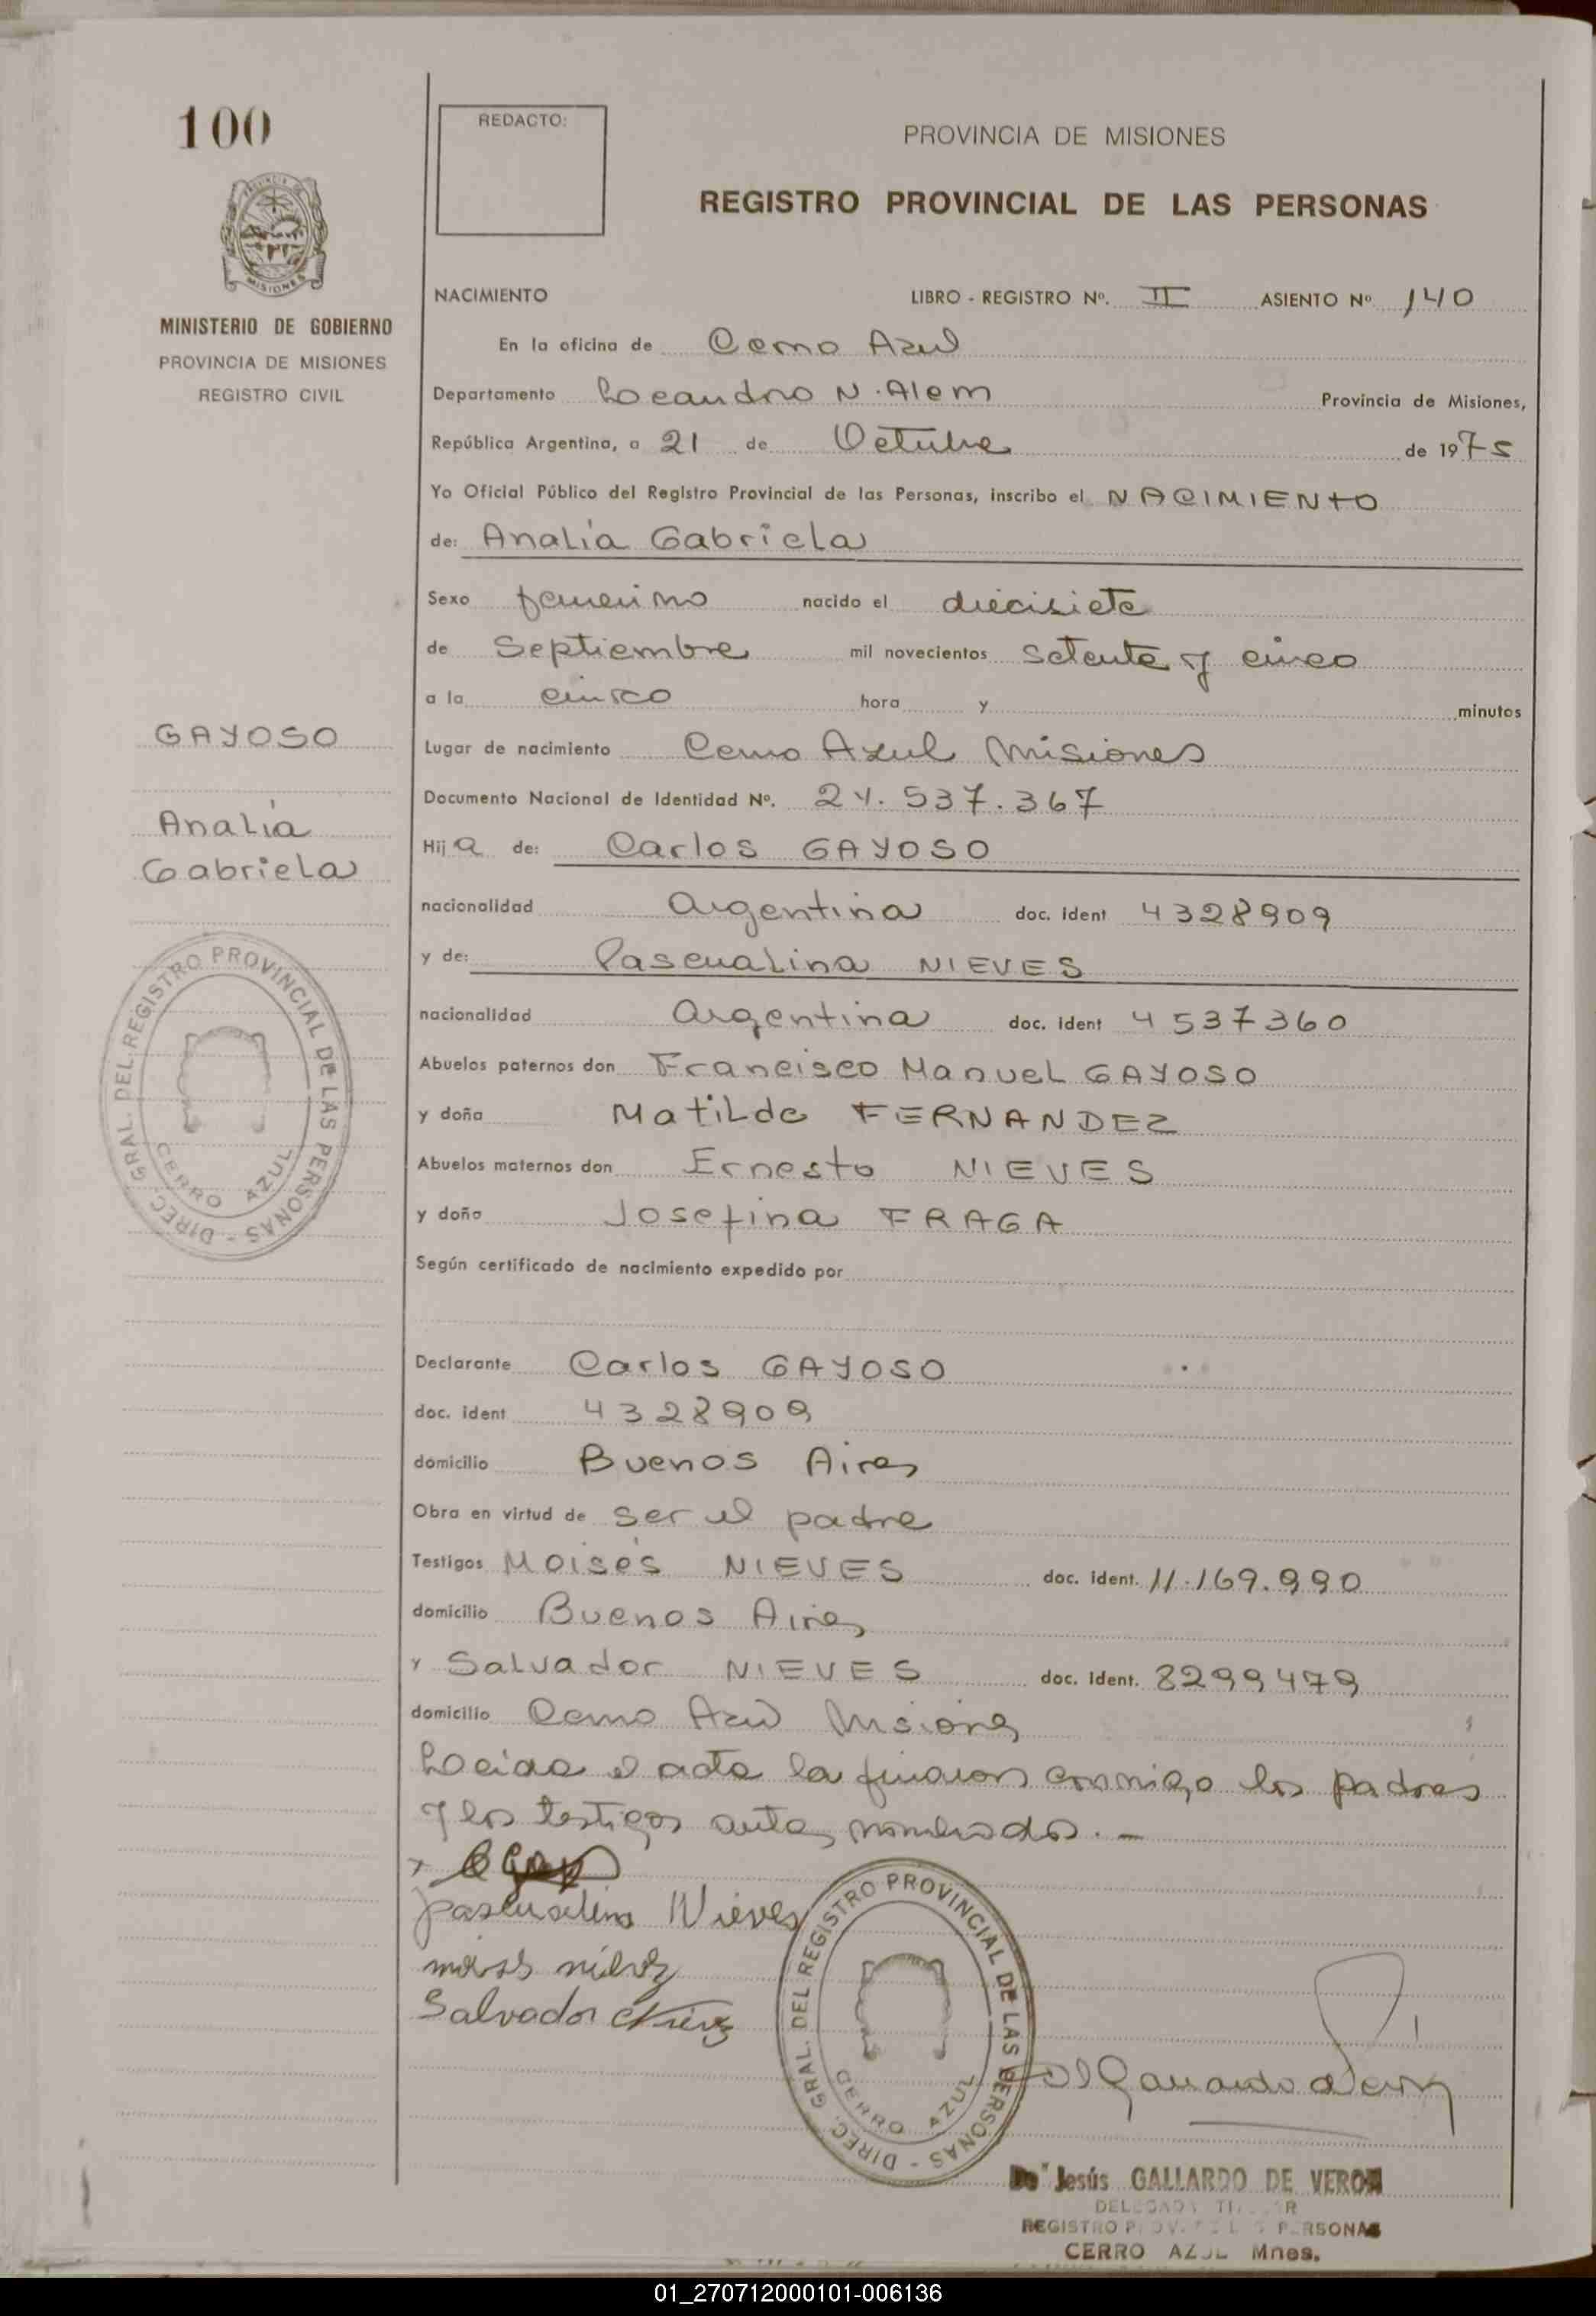 100
REDACTO:
PROVINCIA DE MISIONES
REGISTRO PROVINCIAL DE LAS PERSONAS
MISIONES
MINISTERIO DE GOBIERNO
PROVINCIA DE MISIONES
REGISTRO CIVIL
NACIMIENTO LIBRO - REGISTRO Nº. II ASIENTO Nº 140
En la oficina de Cerro Azul
Departamento Leandro N. Alem Provincia de Misiones,
República Argentina, a 21 de Octubre de 1975
Yo Oficial Público del Registro Provincial de las Personas, inscribo el NACIMIENTO
de: Analía Gabriela
Sexo femenino nacido el diecisiete
de Septiembre mil novecientos setenta y cinco
a la cinco hora y minutos
GAYOSO
Analía
Gabriela
Lugar de nacimiento Cerro Azul Misiones
Documento Nacional de Identidad Nº. 24.537.367
Hija de: Carlos GAYOSO
nacionalidad Argentina doc. ident 4328909
y de: Pascualina NIEVES
nacionalidad Argentina doc. ident 4537360
Abuelos paternos don Francisco Manuel GAYOSO
y doña Matilde FERNANDEZ
Abuelos maternos don Ernesto NIEVES
y doña Josefina FRAGA
DIREC. GRAL. DEL REGISTRO PROVINCIAL DE LAS PERSONAS -
CERRO AZUL
Según certificado de nacimiento expedido por
Declarante Carlos GAYOSO
doc. ident 4328909
domicilio Buenos Aires
Obra en virtud de ser el padre
Testigos Moisés NIEVES doc. ident. 11.169.990
domicilio Buenos Aires
y Salvador NIEVES doc. ident. 8299479
domicilio Cerro Azul Misiones
Leída el acta la firman conmigo los padres
y los testigos antes nombrados.-
Pascualina Nieves
Salvador Nieves
DIREC. GRAL. DEL REGISTRO PROVINCIAL DE LAS PERSONAS -
CERRO AZUL
Gallardo de Veron
Da Jesús GALLARDO DE VERON
DELEGADA TITULAR
REGISTRO PROV. DE LAS PERSONAS
CERRO AZUL Mnes.
01_270712000101-006136